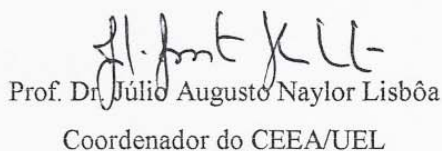 Prof. Dr. Júlio Augusto Naylor Lisbôa
Coordenador do CEEA/UEL